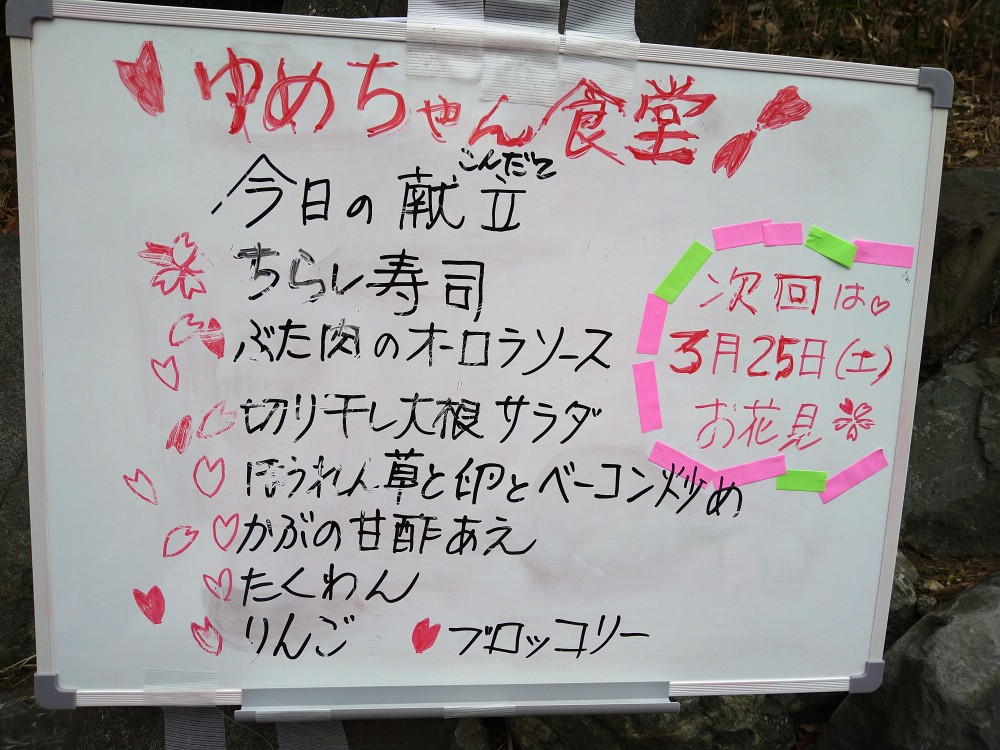 ゆめちゃん食堂
今日の献立
こんだて
ちらし寿司
ぶた肉のオーロラソース
切り干し大根サラダ
ほうれん草と卵とベーコン炒め
かぶの甘酢あえ
たくわん
りんご ブロッコリー
次回は♡
3月25日(土)
お花見